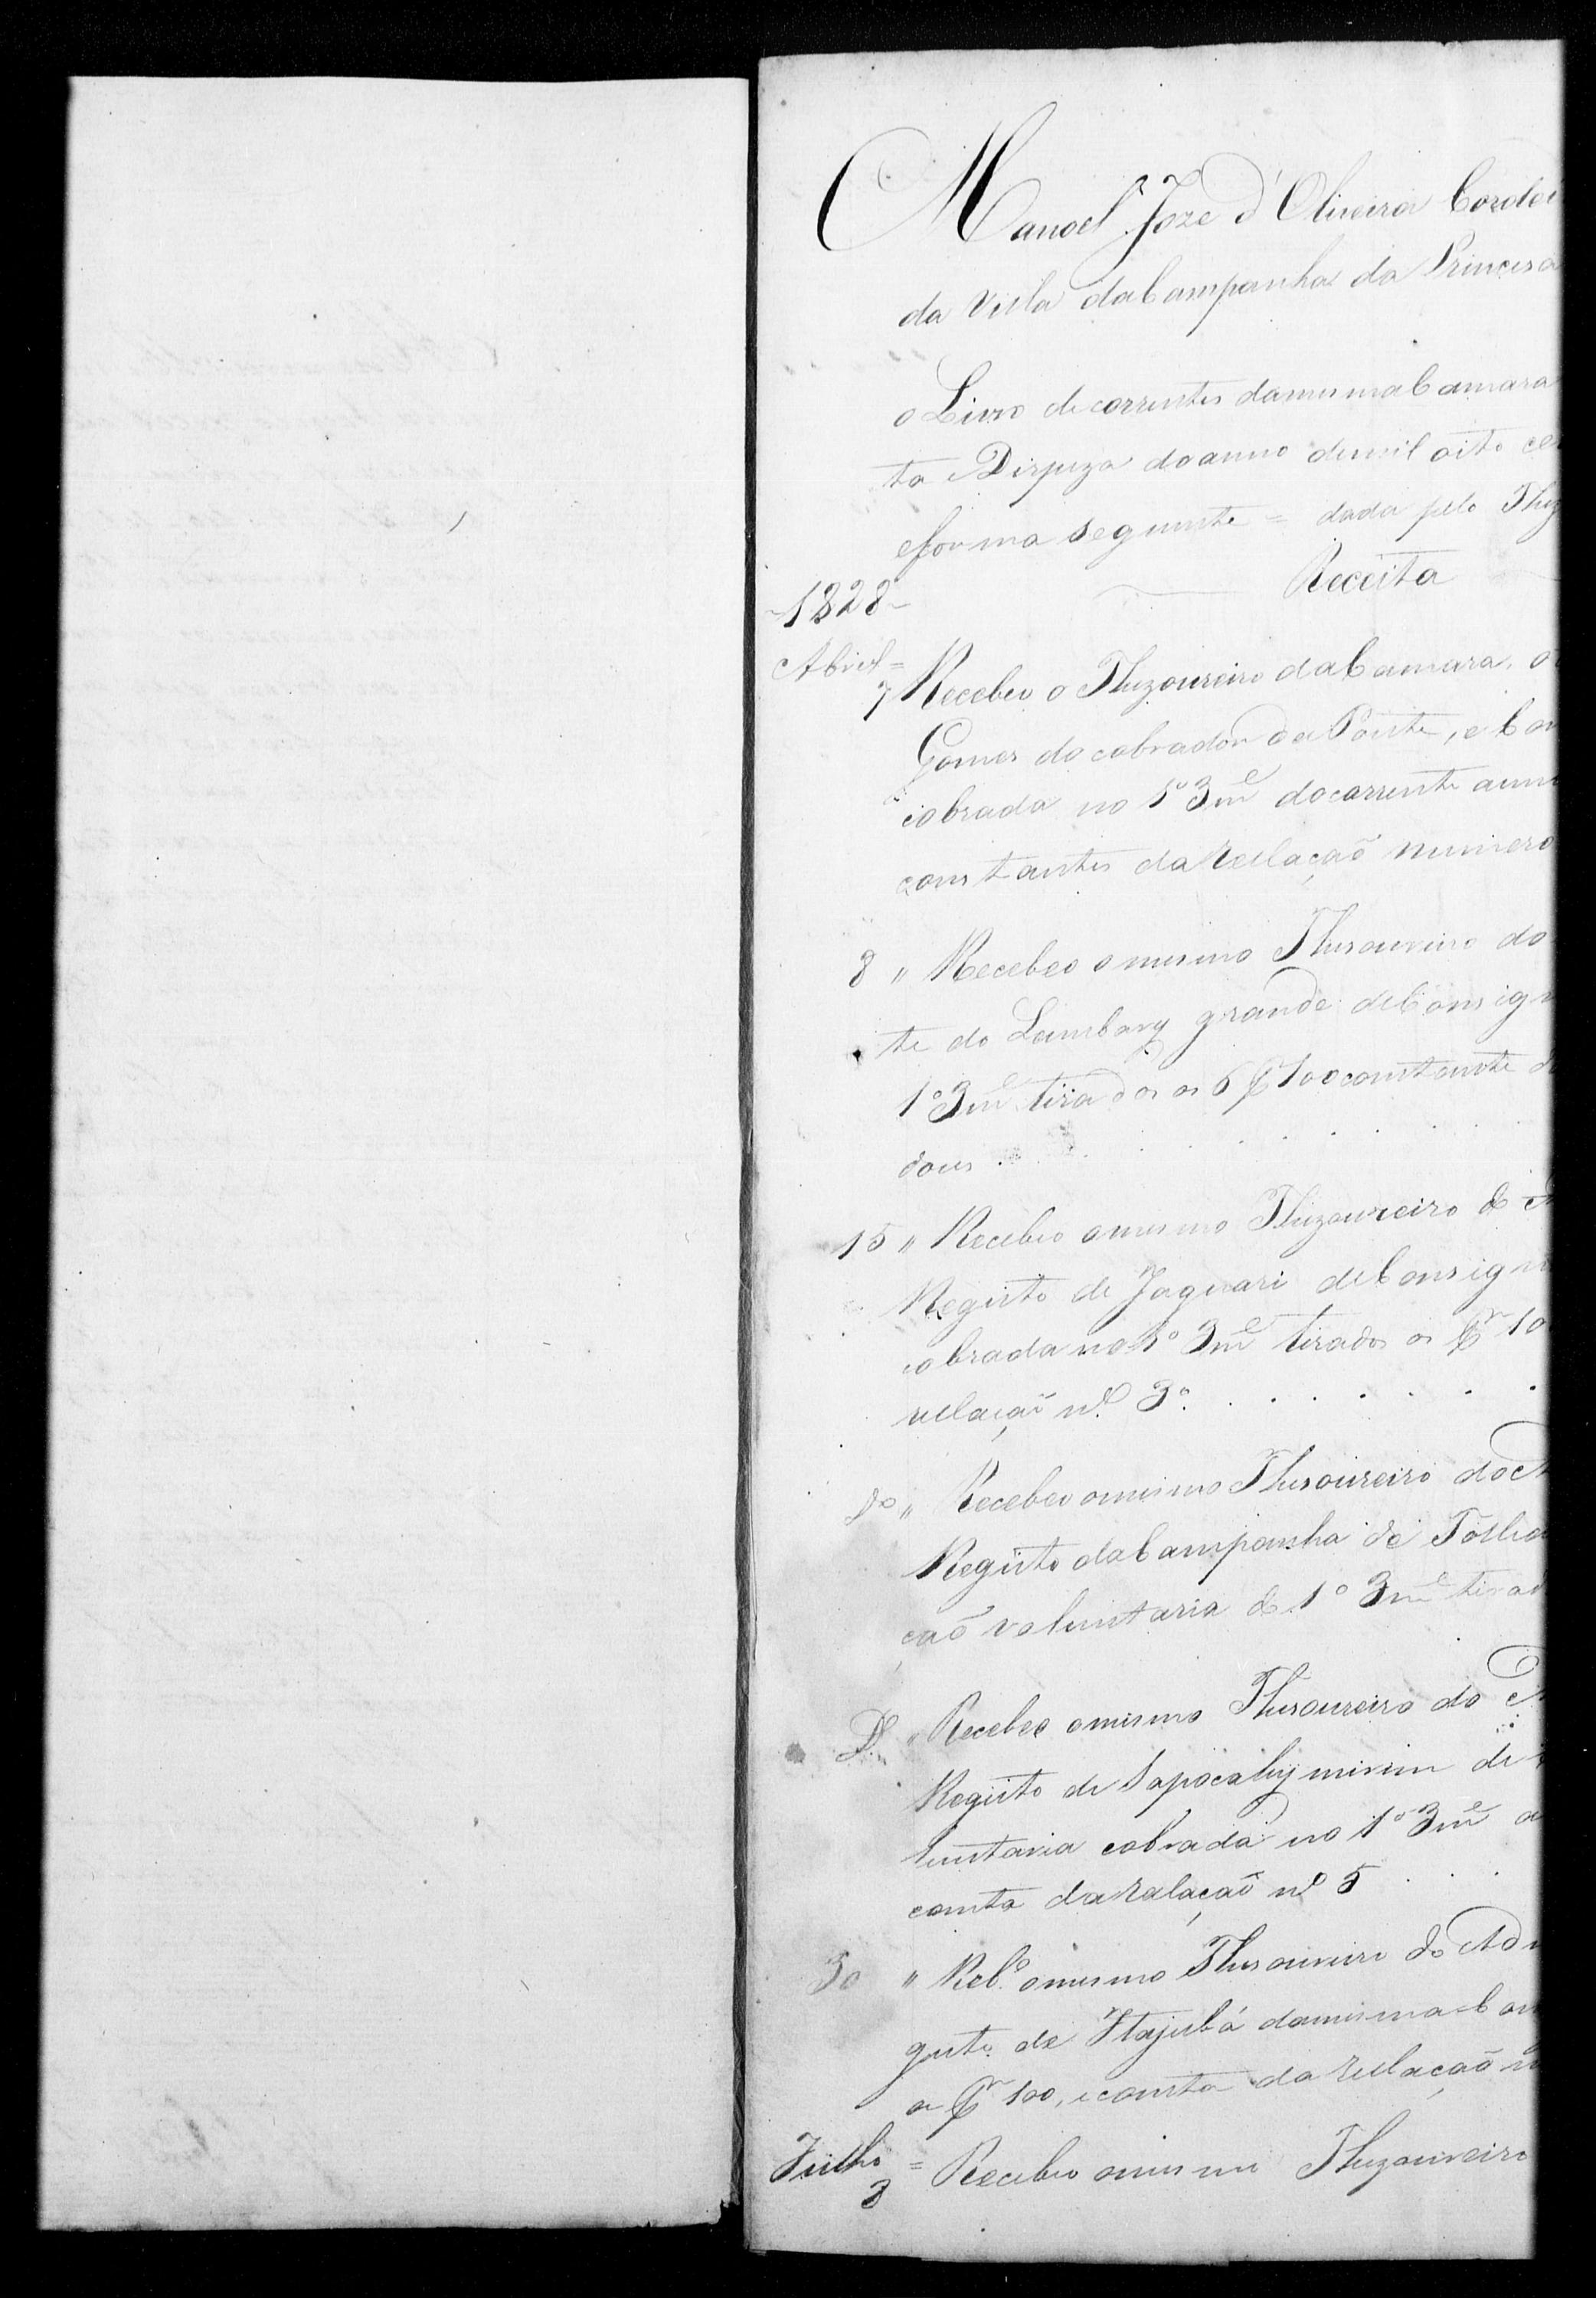 Manoel Joze d'Oliveira Cordei
da Villa da Campanha da Princesa
o Livro de correntes da mesma Camara
ta e Dispeza do anno de mil oito cen
e forma seguinte = dada pelo Thez
Receita
1828
Abril =
7 Recebeo o Thezoureiro da Camara, o
Gomes do cobrador da Ponte, e Con
cobrada no 1º 3me do corrente anno
constantes da relação numero
8 " Recebeo o mesmo Thesoureiro do
te do Lambary grande de Consign
1º 3me tirados os 6 pr 100 constante d
dous
15 " Recebeo o mesmo Thezoureiro do A
Registo de Jaguari de Consign
cobrada no 1º 3me tirados os 6 pr 10
relação nº 3º
Dº " Recebeo o mesmo Thesoureiro do A
Registo da Campanha de Tolledo
ção voluntaria do 1º 3me tirad
Dº " Recebeo o mesmo Thesoureiro do A
Registo de Sapocahy mirim de
luntaria cobrada no 1º 3me
consta da relação nº 5
30 " Rebº o mesmo Thesoureiro do Adm
gisto de Itajubá da mesma Con
pr 100, e consta da relação n
Julho
3 = Recebeo o mesmo Thezoureiro